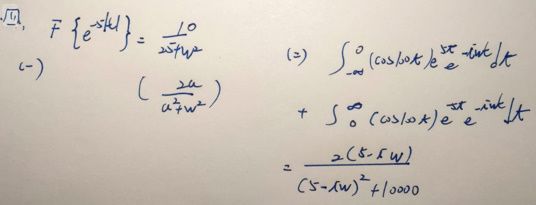 F{e^{-5|t|}} = 10/(25+w²)
(一)
(2a/(a²+w²))
(二) ∫_{-∞}^{0} (cos100t) e^{5t} e^{-iwt} dt
+ ∫_{0}^{∞} (cos100t) e^{5t} e^{-iwt} dt
= 2(5-iw)/((5-iw)²+10000)